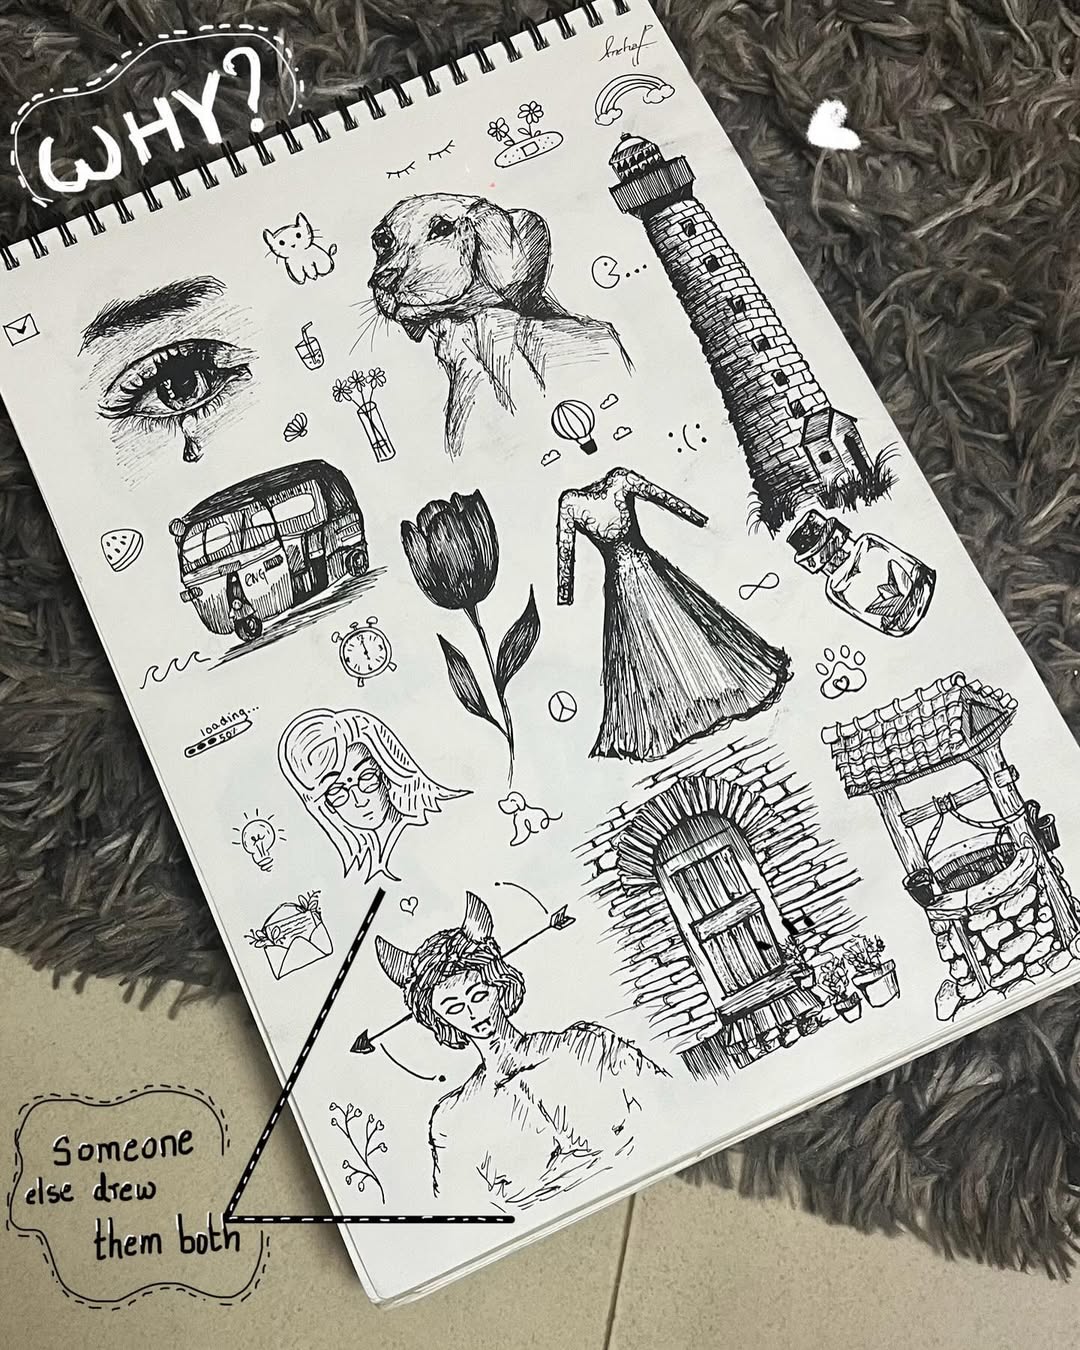 WHY?
CNG
loading...
50%
Someone
else drew
them both